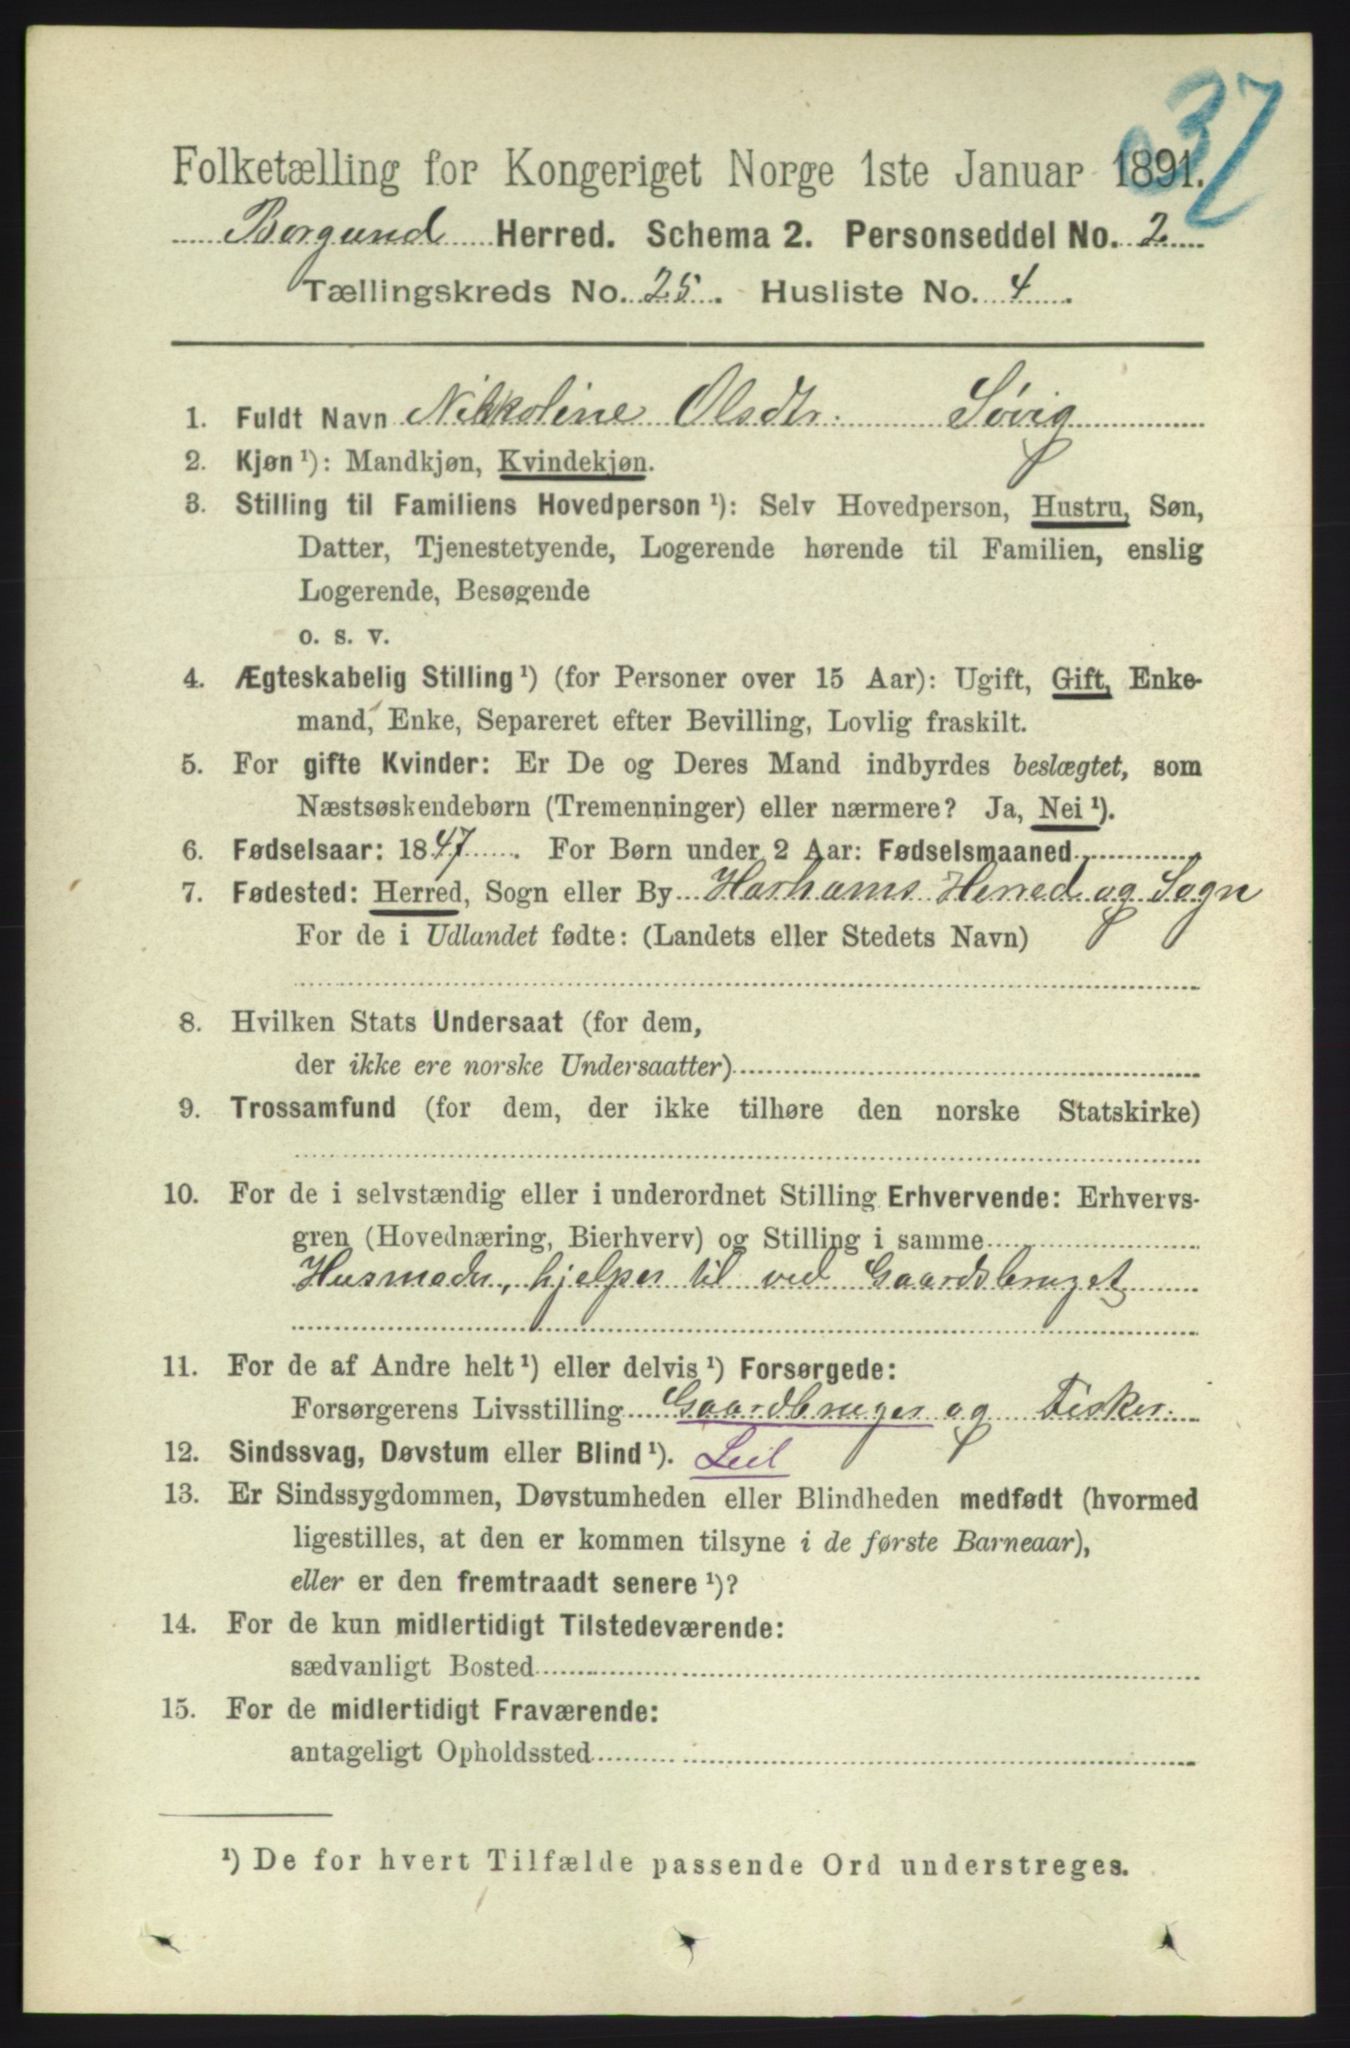 37
Folketælling for Kongeriget Norge 1ste Januar 1891.
Borgund Herred. Schema 2. Personseddel No. 2
Tællingskreds No. 25. Husliste No. 4.
1. Fuldt Navn Nikoline Olsdtr. Søvig
2. Kjøn ¹): Mandkjøn, Kvindekjøn.
3. Stilling til Familiens Hovedperson ¹): Selv Hovedperson, Hustru, Søn,
Datter, Tjenestetyende, Logerende hørende til Familien, enslig
Logerende, Besøgende
o. s. v.
4. Ægteskabelig Stilling ¹) (for Personer over 15 Aar): Ugift, Gift, Enke-
mand, Enke, Separeret efter Bevilling, Lovlig fraskilt.
5. For gifte Kvinder: Er De og Deres Mand indbyrdes beslægtet, som
Næstsøskendebørn (Tremenninger) eller nærmere? Ja, Nei ¹).
6. Fødselsaar: 1847. For Børn under 2 Aar: Fødselsmaaned
7. Fødested: Herred, Sogn eller By Harhams Herred og Sogn
For de i Udlandet fødte: (Landets eller Stedets Navn)
8. Hvilken Stats Undersaat (for dem,
der ikke ere norske Undersaatter)
9. Trossamfund (for dem, der ikke tilhøre den norske Statskirke)
10. For de i selvstændig eller i underordnet Stilling Erhvervende: Erhvervs-
gren (Hovednæring, Bierhverv) og Stilling i samme
Husmoder, hjelper til ved Gaardsbruget
11. For de af Andre helt ¹) eller delvis ¹) Forsørgede:
Forsørgerens Livsstilling Gaardbruger og Fisker.
12. Sindssvag, Døvstum eller Blind ¹). Leil
13. Er Sindssygdommen, Døvstumheden eller Blindheden medfødt (hvormed
ligestilles, at den er kommen tilsyne i de første Barneaar),
eller er den fremtraadt senere ¹)?
14. For de kun midlertidigt Tilstedeværende:
sædvanligt Bosted
15. For de midlertidigt Fraværende:
antageligt Opholdssted
¹) De for hvert Tilfælde passende Ord understreges.